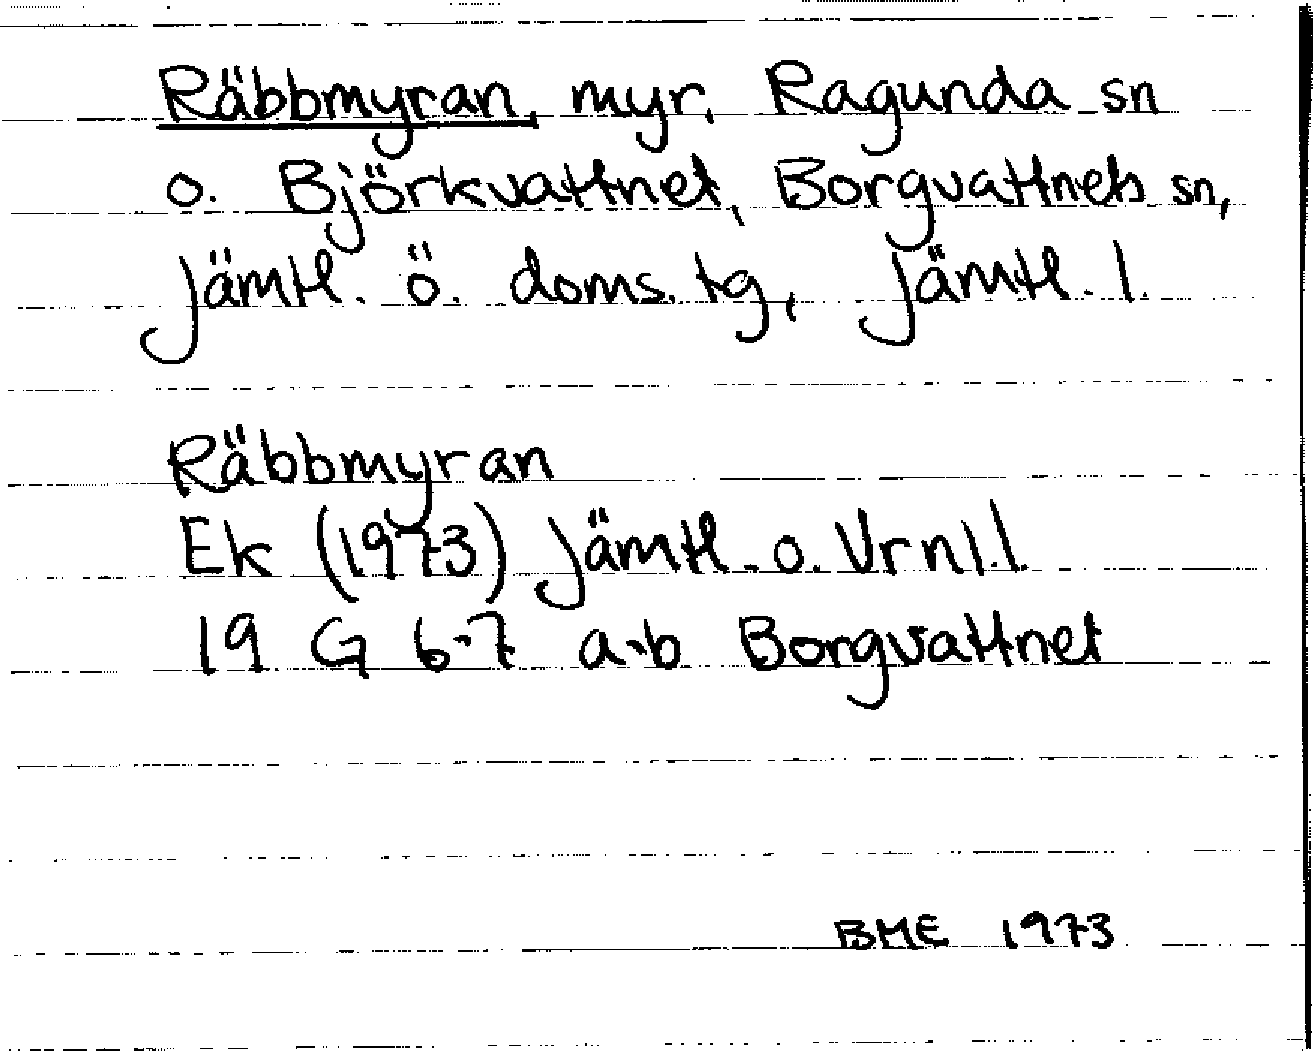 Räbbmyran, myr, Ragunda sn
o. Björkvattnet, Borgvattnets sn,
Jämtl. ö. doms. tg, Jämtl. l.
Räbbmyran
Ek (1973) Jämtl. o. Vrnl.l.
19 G 6-7 a-b Borgvattnet
BME 1973